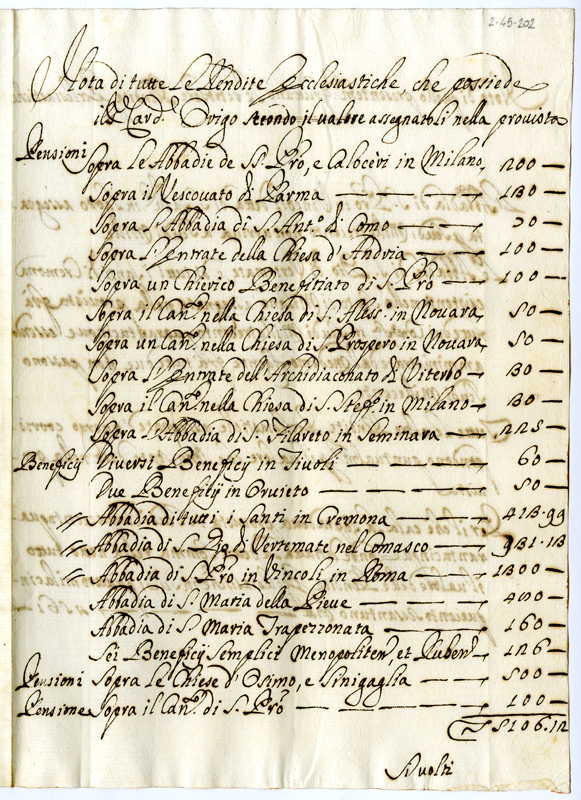 2-45-202
Nota di tutte Le Rendite Ecclesiastiche, che possiede
il Sig.r Card.l Origo secondo il valore assegnatoli nella provista
Pensioni Sopra Le Abbadie de S. Pro, e Caloceri in Milano 200 —
Sopra il Vescovato di Parma — 130 —
Sopra L'Abbadia di S. Ant.o di Como — 30 —
Sopra L'Entrate della Chiesa d'Andria — 100 —
Sopra un Chierico Benefitiato di S. Pro — 100 —
Sopra il Can.to nella Chiesa di S. Aless.o in Novara 50 —
Sopra un Can.to nella Chiesa di S. Prospero in Novara 50 —
Sopra L'Entrate dell'Archidiaconato di Viterbo — 130 —
Sopra il Can.to nella Chiesa di S. Stef.o in Milano — 130 —
Sopra L'Abbadia di S. Filareto in Seminara — 225 —
Beneficij Diversi Beneficij in Tivoli — 60 —
Due Beneficij in Orvieto — 50 —
Abbadia di tutti i Santi in Cremona — 413.99
Abbadia di S. Gio. di Vertemate nel Comasco — 931.13
Abbadia di S. Pro in Vincoli in Roma — 1300 —
Abbadia di S. Maria della Pieve — 450 —
Abbadia di S. Maria Trapezzonata — 160 —
Sei Beneficij Semplici Menopoliten, et Ruben — 126 —
Pensioni Sopra Le Chiese d'Osimo, e Sinigaglia — 500 —
Pensione Sopra il Can.to di S. Pro — 100 —
5106.12
Svolti